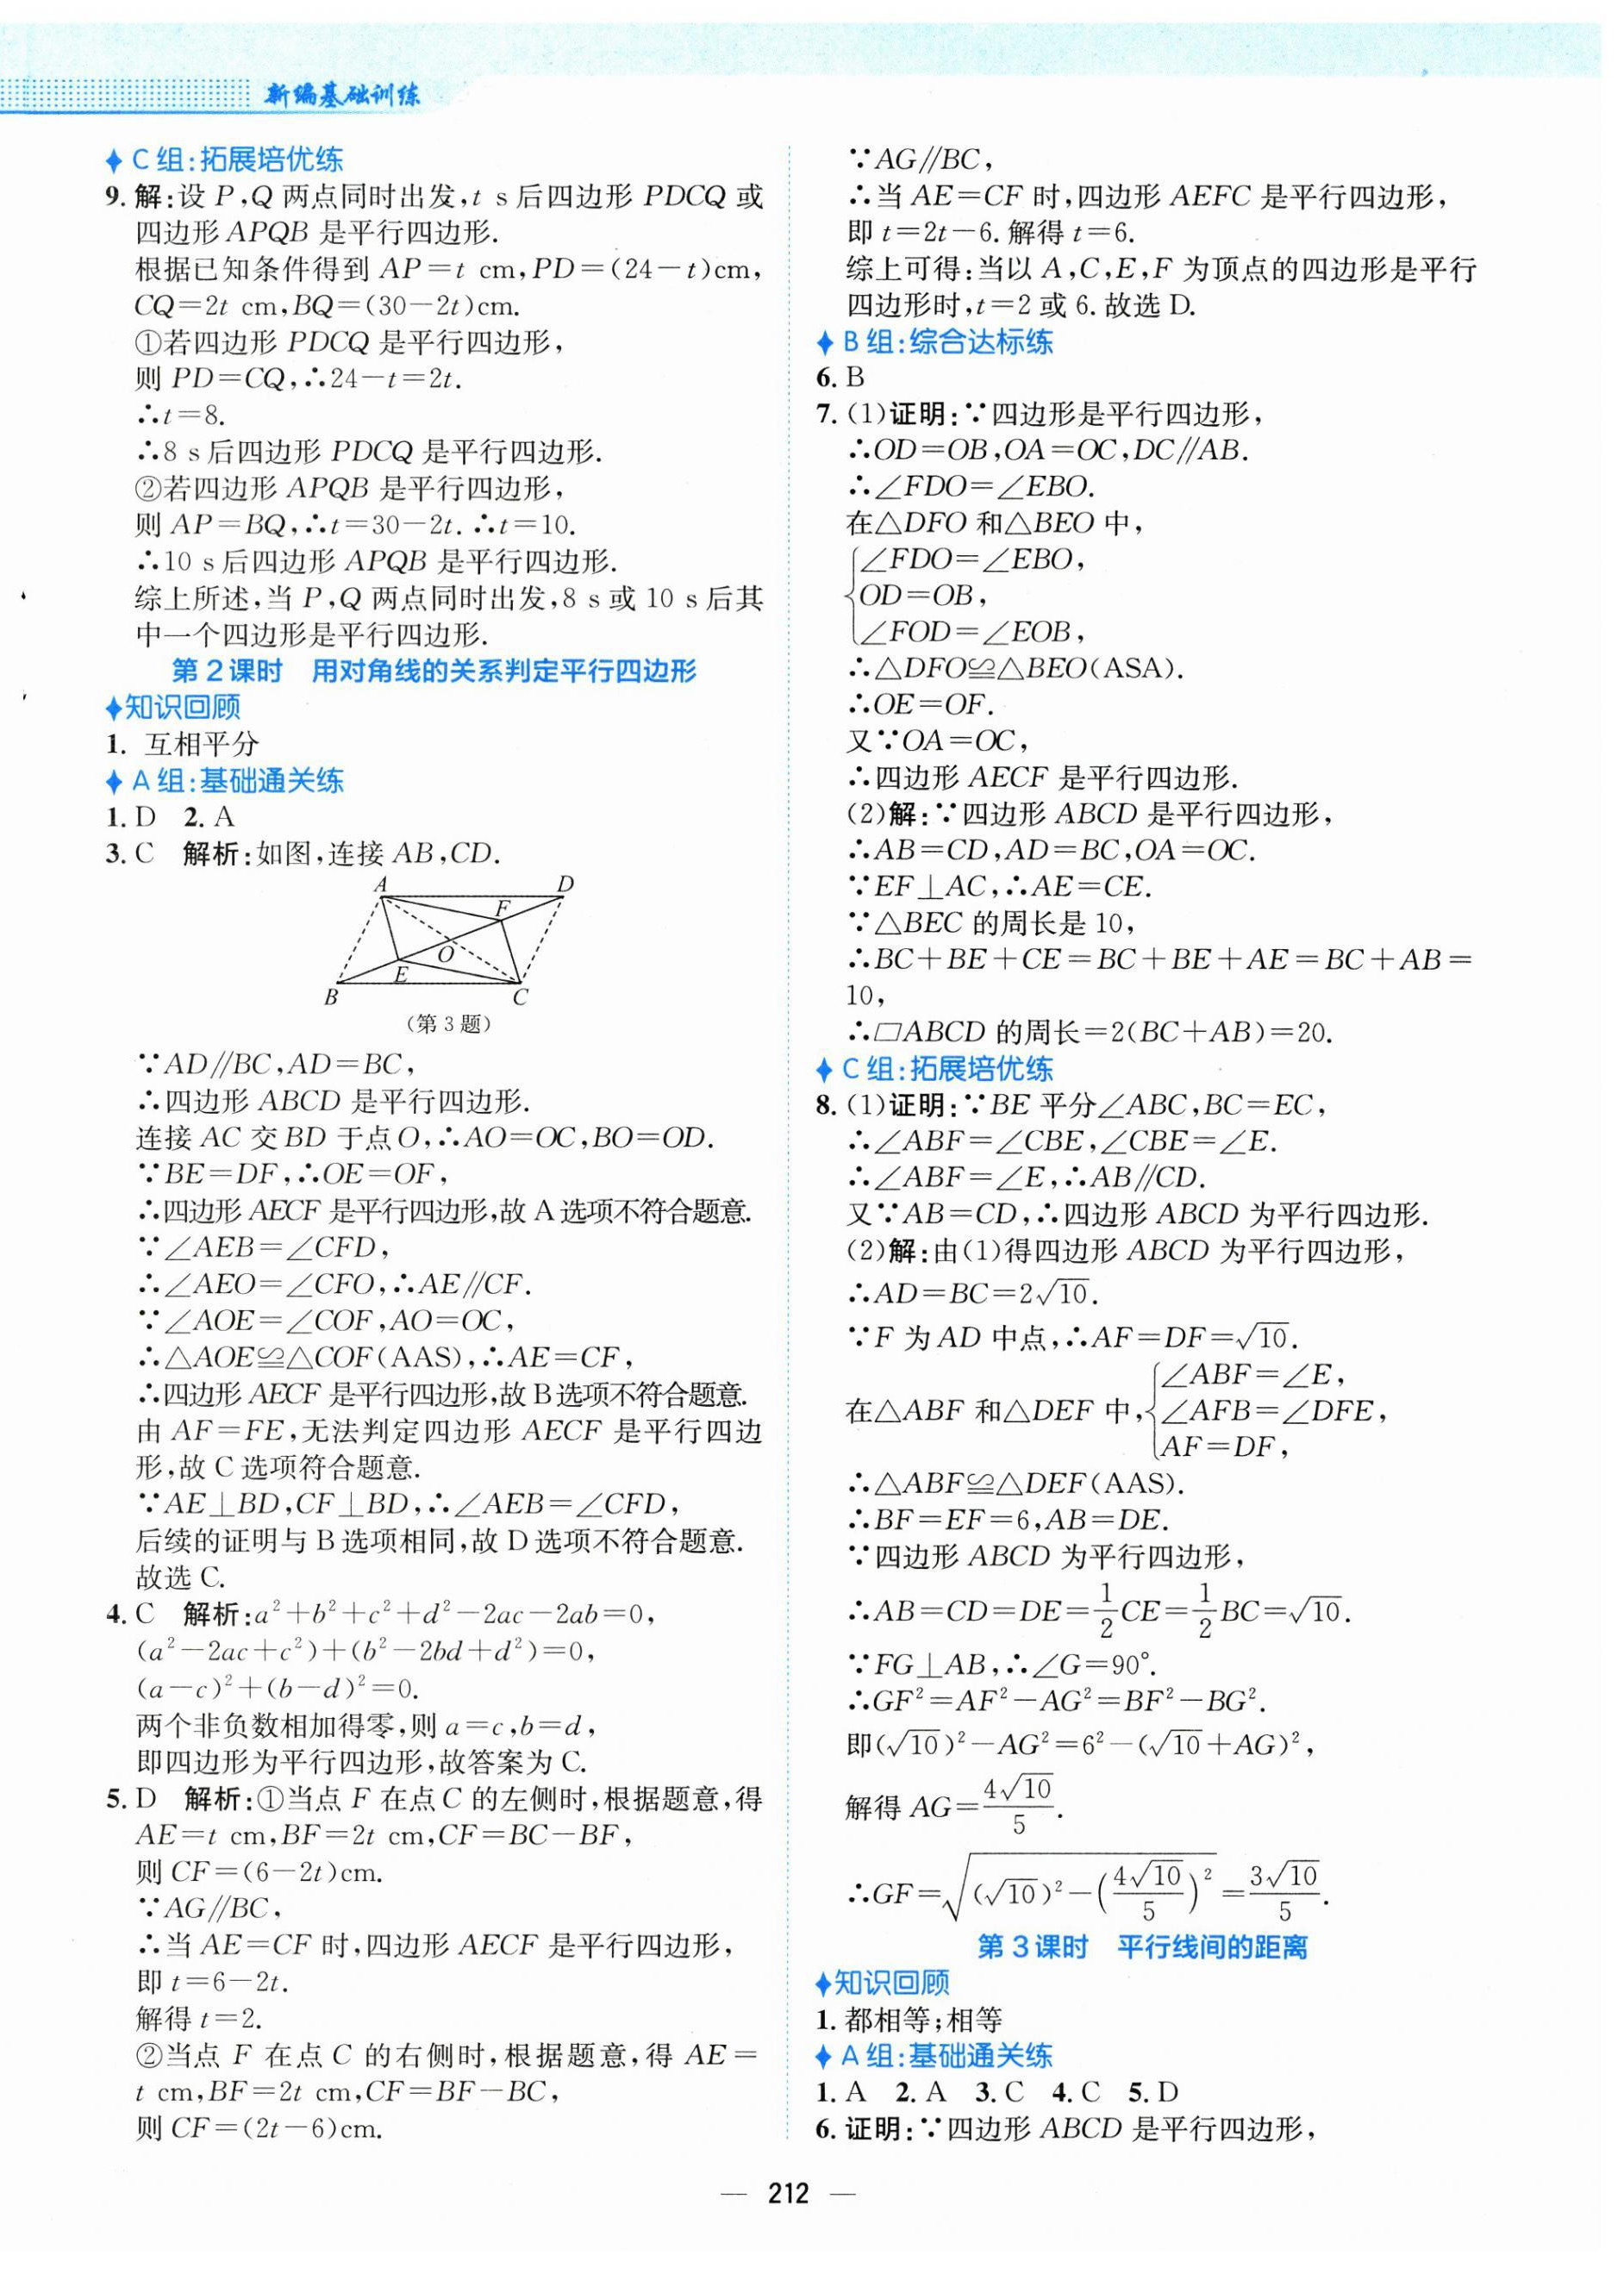 新编基础训练
C组:拓展培优练
9. 解:设 P,Q 两点同时出发,t s后四边形 PDCQ 或
四边形 APQB 是平行四边形.
根据已知条件得到 AP=t cm,PD=(24-t)cm,
CQ=2t cm,BQ=(30-2t)cm.
①若四边形 PDCQ 是平行四边形,
则 PD=CQ,∴24-t=2t.
∴t=8.
∴8 s后四边形 PDCQ 是平行四边形.
②若四边形 APQB 是平行四边形,
则 AP=BQ,∴t=30-2t.∴t=10.
∴10 s后四边形 APQB 是平行四边形.
综上所述,当 P,Q 两点同时出发,8 s或 10 s后其
中一个四边形是平行四边形.
第2课时 用对角线的关系判定平行四边形
知识回顾
1. 互相平分
A组:基础通关练
1. D 2. A
3. C 解析:如图,连接 AB,CD.
A D
F
O
E
B C
(第3题)
∵AD∥BC,AD=BC,
∴四边形 ABCD 是平行四边形.
连接 AC 交 BD 于点O,∴AO=OC,BO=OD.
∵BE=DF,∴OE=OF,
∴四边形 AECF 是平行四边形,故 A选项不符合题意.
∵∠AEB=∠CFD,
∴∠AEO=∠CFO,∴AE∥CF.
∵∠AOE=∠COF,AO=OC,
∴△AOE≌△COF(AAS),∴AE=CF,
∴四边形 AECF 是平行四边形,故 B选项不符合题意.
由 AF=FE,无法判定四边形 AECF 是平行四边
形,故 C选项符合题意.
∵AE⊥BD,CF⊥BD,∴∠AEB=∠CFD,
后续的证明与 B选项相同,故 D选项不符合题意.
故选 C.
4. C 解析:a²+b²+c²+d²-2ac-2ab=0,
(a²-2ac+c²)+(b²-2bd+d²)=0,
(a-c)²+(b-d)²=0.
两个非负数相加得零,则 a=c,b=d,
即四边形为平行四边形,故答案为 C.
5. D 解析:①当点 F 在点C 的左侧时,根据题意,得
AE=t cm,BF=2t cm,CF=BC-BF,
则 CF=(6-2t)cm.
∵AG∥BC,
∴当 AE=CF 时,四边形 AECF 是平行四边形,
即 t=6-2t.
解得 t=2.
②当点 F 在点 C 的右侧时,根据题意,得 AE=
t cm,BF=2t cm,CF=BF-BC,
则 CF=(2t-6)cm.
∵AG∥BC,
∴当 AE=CF 时,四边形 AEFC 是平行四边形,
即 t=2t-6.解得 t=6.
综上可得:当以 A,C,E,F 为顶点的四边形是平行
四边形时,t=2或 6.故选 D.
B组:综合达标练
6. B
7. (1)证明:∵四边形是平行四边形,
∴OD=OB,OA=OC,DC∥AB.
∴∠FDO=∠EBO.
在△DFO 和△BEO 中,
{∠FDO=∠EBO,
OD=OB,
∠FOD=∠EOB,
∴△DFO≌△BEO(ASA).
∴OE=OF.
又∵OA=OC,
∴四边形 AECF 是平行四边形.
(2)解:∵四边形 ABCD 是平行四边形,
∴AB=CD,AD=BC,OA=OC.
∵EF⊥AC,∴AE=CE.
∵△BEC 的周长是 10,
∴BC+BE+CE=BC+BE+AE=BC+AB=
10,
∴□ABCD 的周长=2(BC+AB)=20.
C组:拓展培优练
8. (1)证明:∵BE 平分∠ABC,BC=EC,
∴∠ABF=∠CBE,∠CBE=∠E.
∴∠ABF=∠E,∴AB∥CD.
又∵AB=CD,∴四边形 ABCD 为平行四边形.
(2)解:由(1)得四边形 ABCD 为平行四边形,
∴AD=BC=2√10.
∵F 为 AD 中点,∴AF=DF=√10.
在△ABF 和△DEF 中,{∠ABF=∠E,
∠AFB=∠DFE,
AF=DF,
∴△ABF≌△DEF(AAS).
∴BF=EF=6,AB=DE.
∵四边形 ABCD 为平行四边形,
∴AB=CD=DE=1/2CE=1/2BC=√10.
∵FG⊥AB,∴∠G=90°.
∴GF²=AF²-AG²=BF²-BG².
即(√10)²-AG²=6²-(√10+AG)²,
解得 AG=4√10/5.
∴GF=√((√10)²-(4√10/5)²)=3√10/5.
第3课时 平行线间的距离
知识回顾
1. 都相等;相等
A组:基础通关练
1. A 2. A 3. C 4. C 5. D
6. 证明:∵四边形 ABCD 是平行四边形,
— 212 —